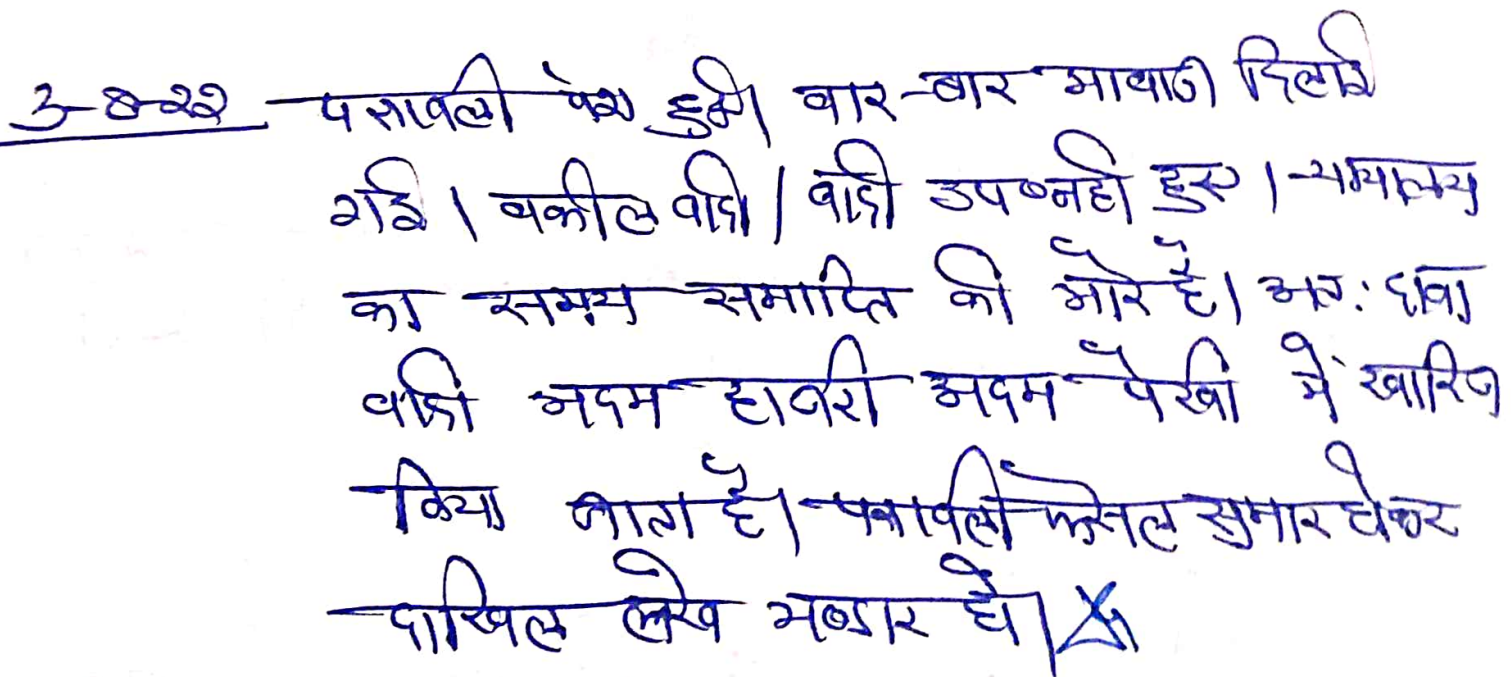 3-8-22 पत्रावली पेश हुई। बार-बार आवाज दिलाई
गई। वकील वादी/वादी उप० नही हुए। न्यायालय
का समय समाप्ति की ओर है। अतः दावा
वादी अदम हाजरी अदम पेरवी में खारिज
किया जाता है। पत्रावली फैसल सुमार होकर
दाखिल लेख भण्डार हो।